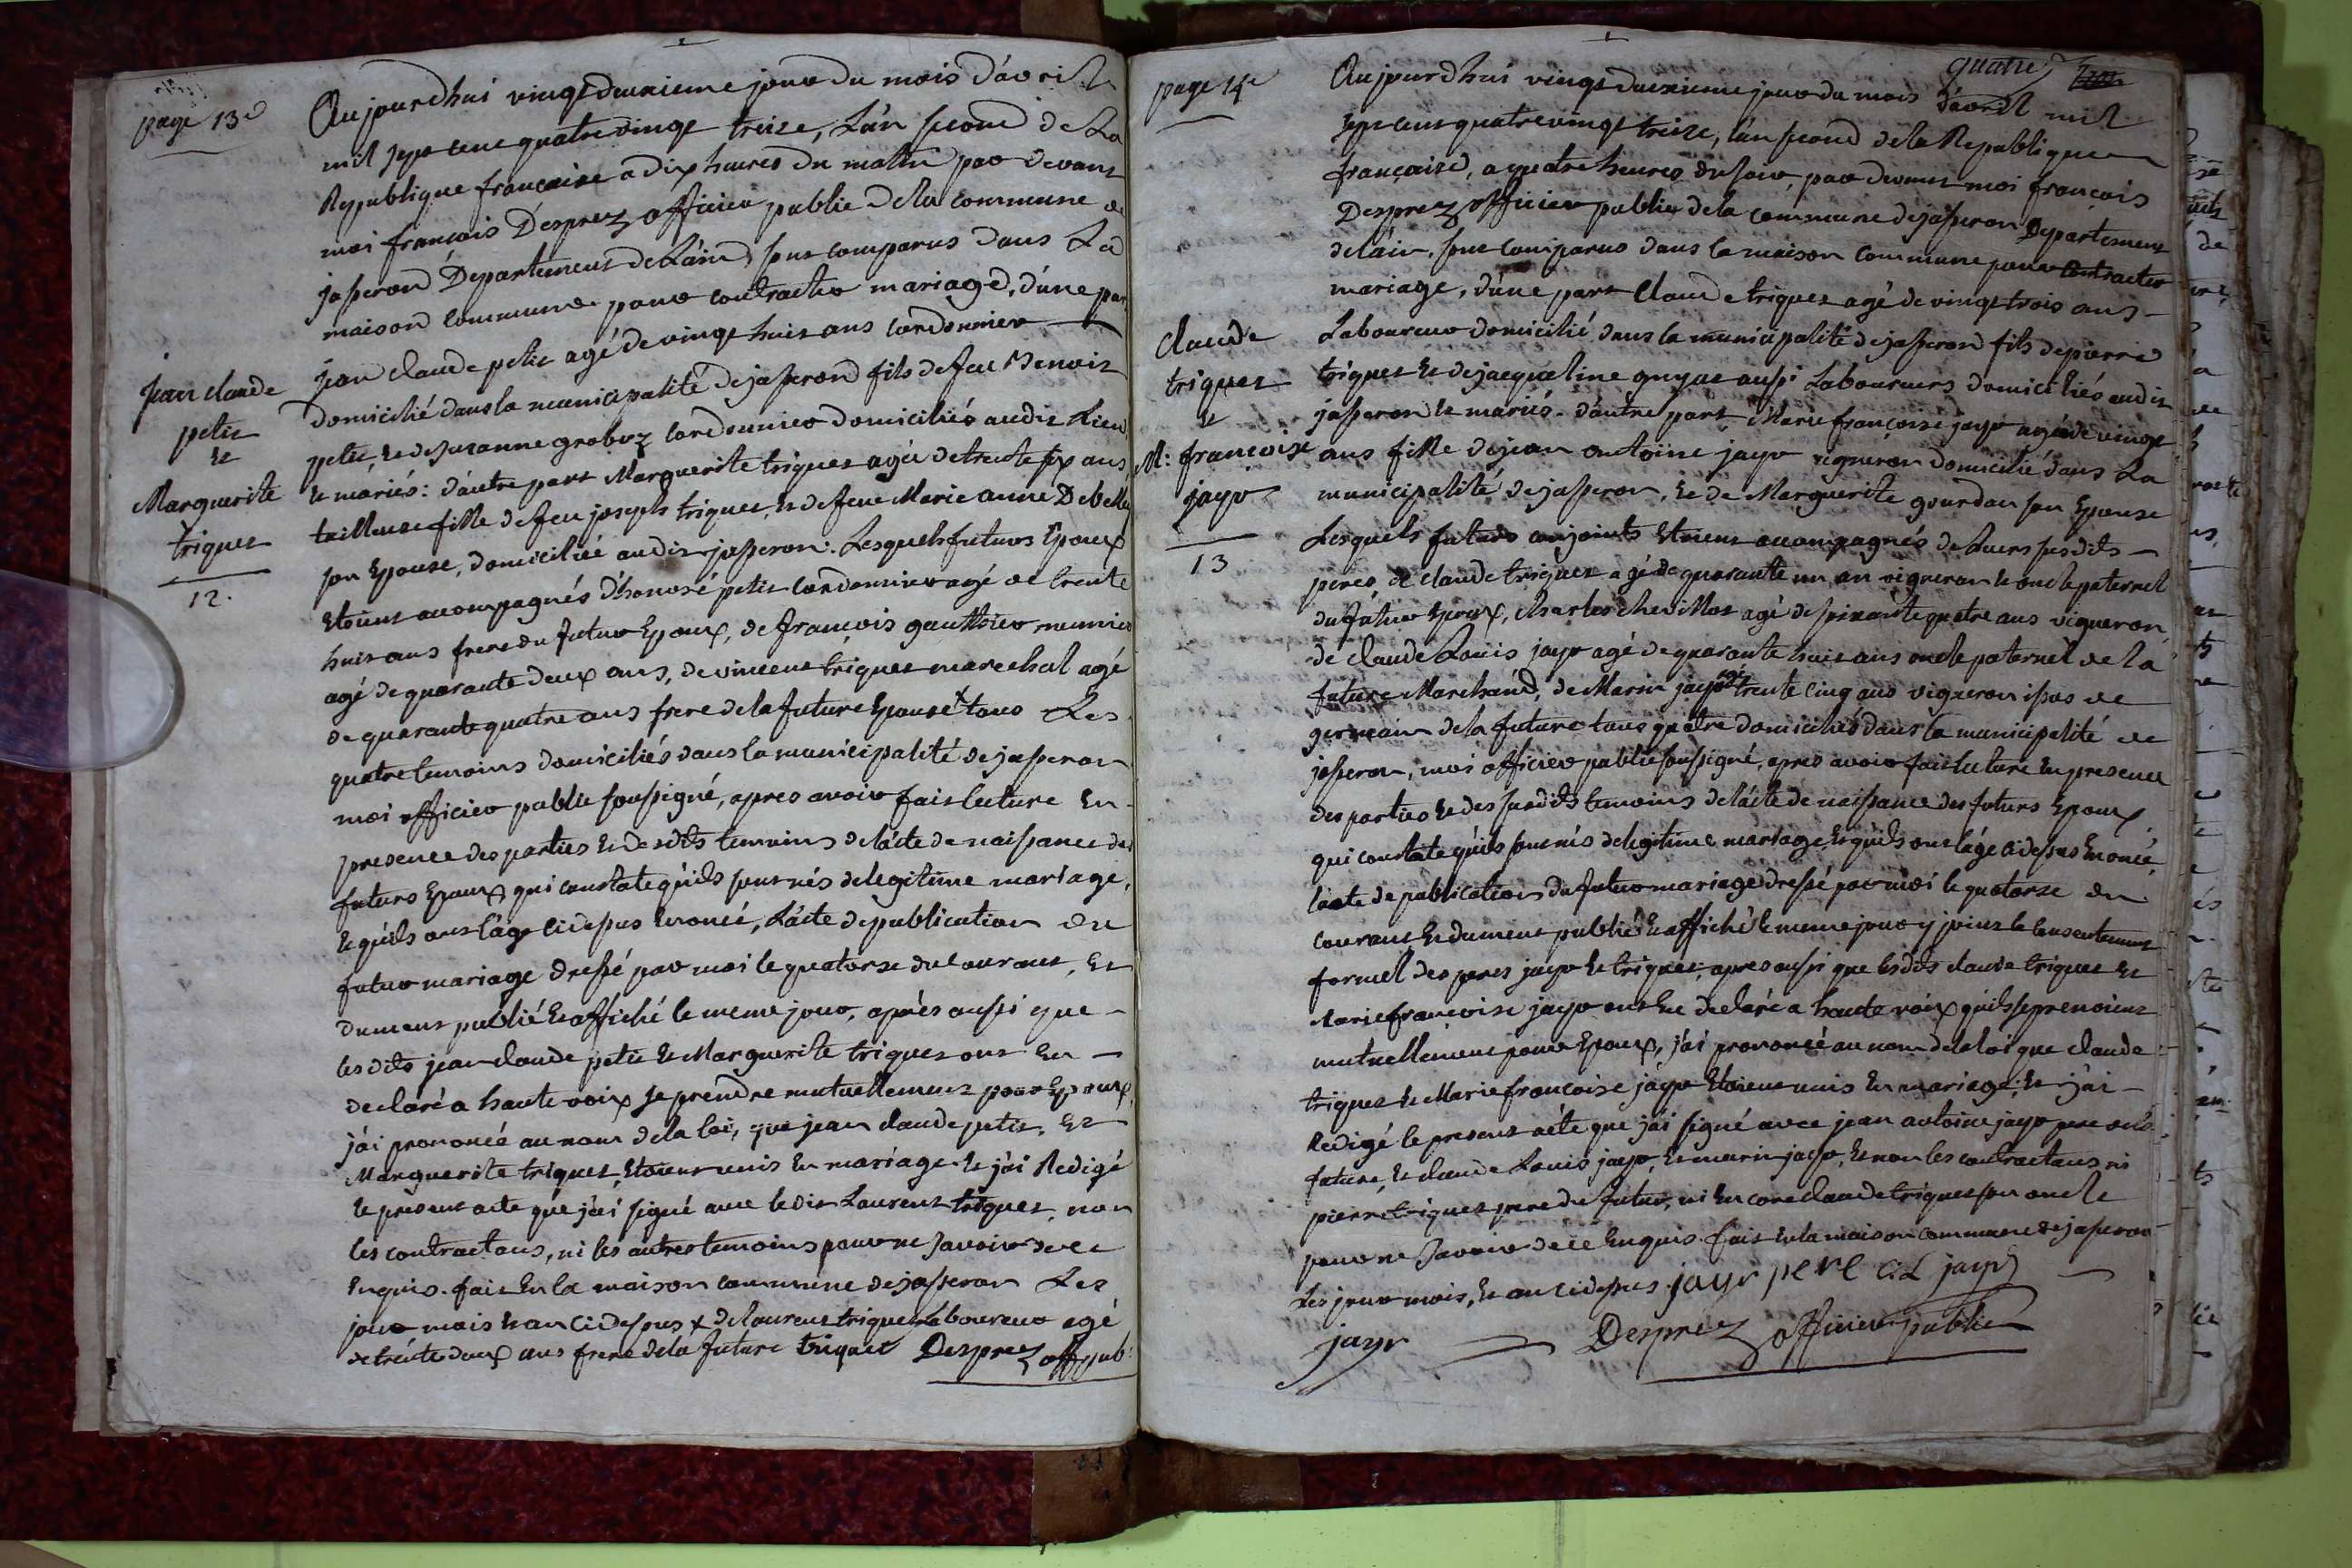 page 13e
Aujourdhui vingt deuxieme jour du mois d'avril
mil sept cent quatre vingt treize, L'an second de La
Republique francaise a dix heures du matin par devant
moi francois Desprez officier public de la commune de
jasseron Departement de L'ain, sont comparus dans La
maison commune pour contracter mariage, d'une part
jean claude petit agé de vingt huit ans cordonnier
domicilié dans la municipalité de jasseron fils de feu Benoit
petit, et de Suzanne groboz cordonnier domiciliés audit Lieu
et mariés: d'autre part Marguerite triquet agée de trente six ans
tailleuse fille de feu joseph triquet, et de feue Marie anne
son Epouse, domiciliée audit jasseron. Lesquels futurs Epoux
Etoient accompagnés d'honoré petit cordonnier agé de trente
huit ans frere du futur Epoux, de françois gauthier meunier
agé de quarante deux ans, de vincent triquet marechal agé
de quarante quatre ans frere de la future Epouse x tous Les
quatre temoins domiciliés dans la municipalité de jasseron
moi officier public soussigné, apres avoir fait lecture En
presence des parties et desdits temoins de l'acte de naissance des
futurs Epoux qui constate qu'ils sont nés de legitime mariage,
et qu'ils ont l'age ci dessus Enoncé, L'acte de publication du
futur mariage dressé par moi le quatorse du courant, et
dument publié et affiché le meme jour, après aussi que
lesdits jean claude petit et Marguerite triquet ont Eu
declaré a haute voix se prendre mutuellement pour Epoux,
j'ai prononcé au nom de la loi, que jean claude petit, et
Marguerite triquet, Etoient unis En mariage et j'ai Redigé
le present acte que j'ai signé avec ledit Laurent triquet, non
les contractans, ni les autres temoins pour ne savoir de ce
Enquis. fait En la maison commune de jasseron Les
jour mois et an ci dessus x de laurent triquet Laboureur agé
de trente deux ans frere de la future triquet Desprez off pub:
jean claude
petit
et
Marguerite
triquet
12.
page 14e
quatre
Aujourdhui vingt deuxieme jour du mois d'avril mil
sept cent quatre vingt treize, l'an second de la Republique
française, a quatre heures du soir, par devant moi francois
Desprez officier public de la commune de jasseron Departement
de l'ain, sont comparus dans la maison commune pour contracter
mariage, d'une part Claude triquet agé de vingt trois ans
Laboureur domicilié dans la municipalité de jasseron fils de pierre
triquet et de jacqueline guyat aussi Laboureurs domiciliés audit
jasseron et mariés. d'autre part Marie françoise jayr agée de vingt
ans fille de jean antoine jayr vigneron domicilié dans La
municipalité de jasseron, et de Marguerite gourdan son Epouse
Lesquels futurs conjoints Etoient accompagnés de Leurs susdits
peres, de claude triquet agé de quarante un an vigneron et oncle paternel
du futur Epoux, Charles chevillot agé de soixante quatre ans vigneron,
de claude Louis jayr agé de quarante huit ans oncle paternel de la
future Marchand, de Marin jayr agé trente cinq ans vigneron issus de
germain de la future tous quatre domiciliés dans la municipalité de
jasseron, moi officier public soussigné, apres avoir fait lecture En presence
des parties et des susdits temoins de l'acte de naissance des futurs Epoux
qui constate qu'ils sont nés de legitime mariage, et qu'ils ont l'age ci dessus Enoncé,
l'acte de publication du futur mariage dressé par moi le quatorse du
courant et dument publié et affiché le meme jour y joint le consentement
formel des peres jayr et triquet, apres aussi que lesdits claude triquet et
Marie francoise jayr ont Eu declaré a haute voix qu'ils se prenoient
mutuellement pour Epoux, j'ai prononcé au nom de la loi que claude
triquet et Marie francoise jayr Etoient unis En mariage, et j'ai
Redigé le present acte que j'ai signé avec jean antoine jayr pere de la
future, et claude Louis jayr, et marin jayr, et non les contractans, ni
pierre triquet pere du futur, ni Encore claude triquet son oncle
pour ne savoir de ce Enquis. fait En la maison commune de jasseron
Les jour mois, et an ci dessus. jayr pere C. L jayr
jayr Desprez officier public
claude
triquet
et
M: francoise
jayr
13